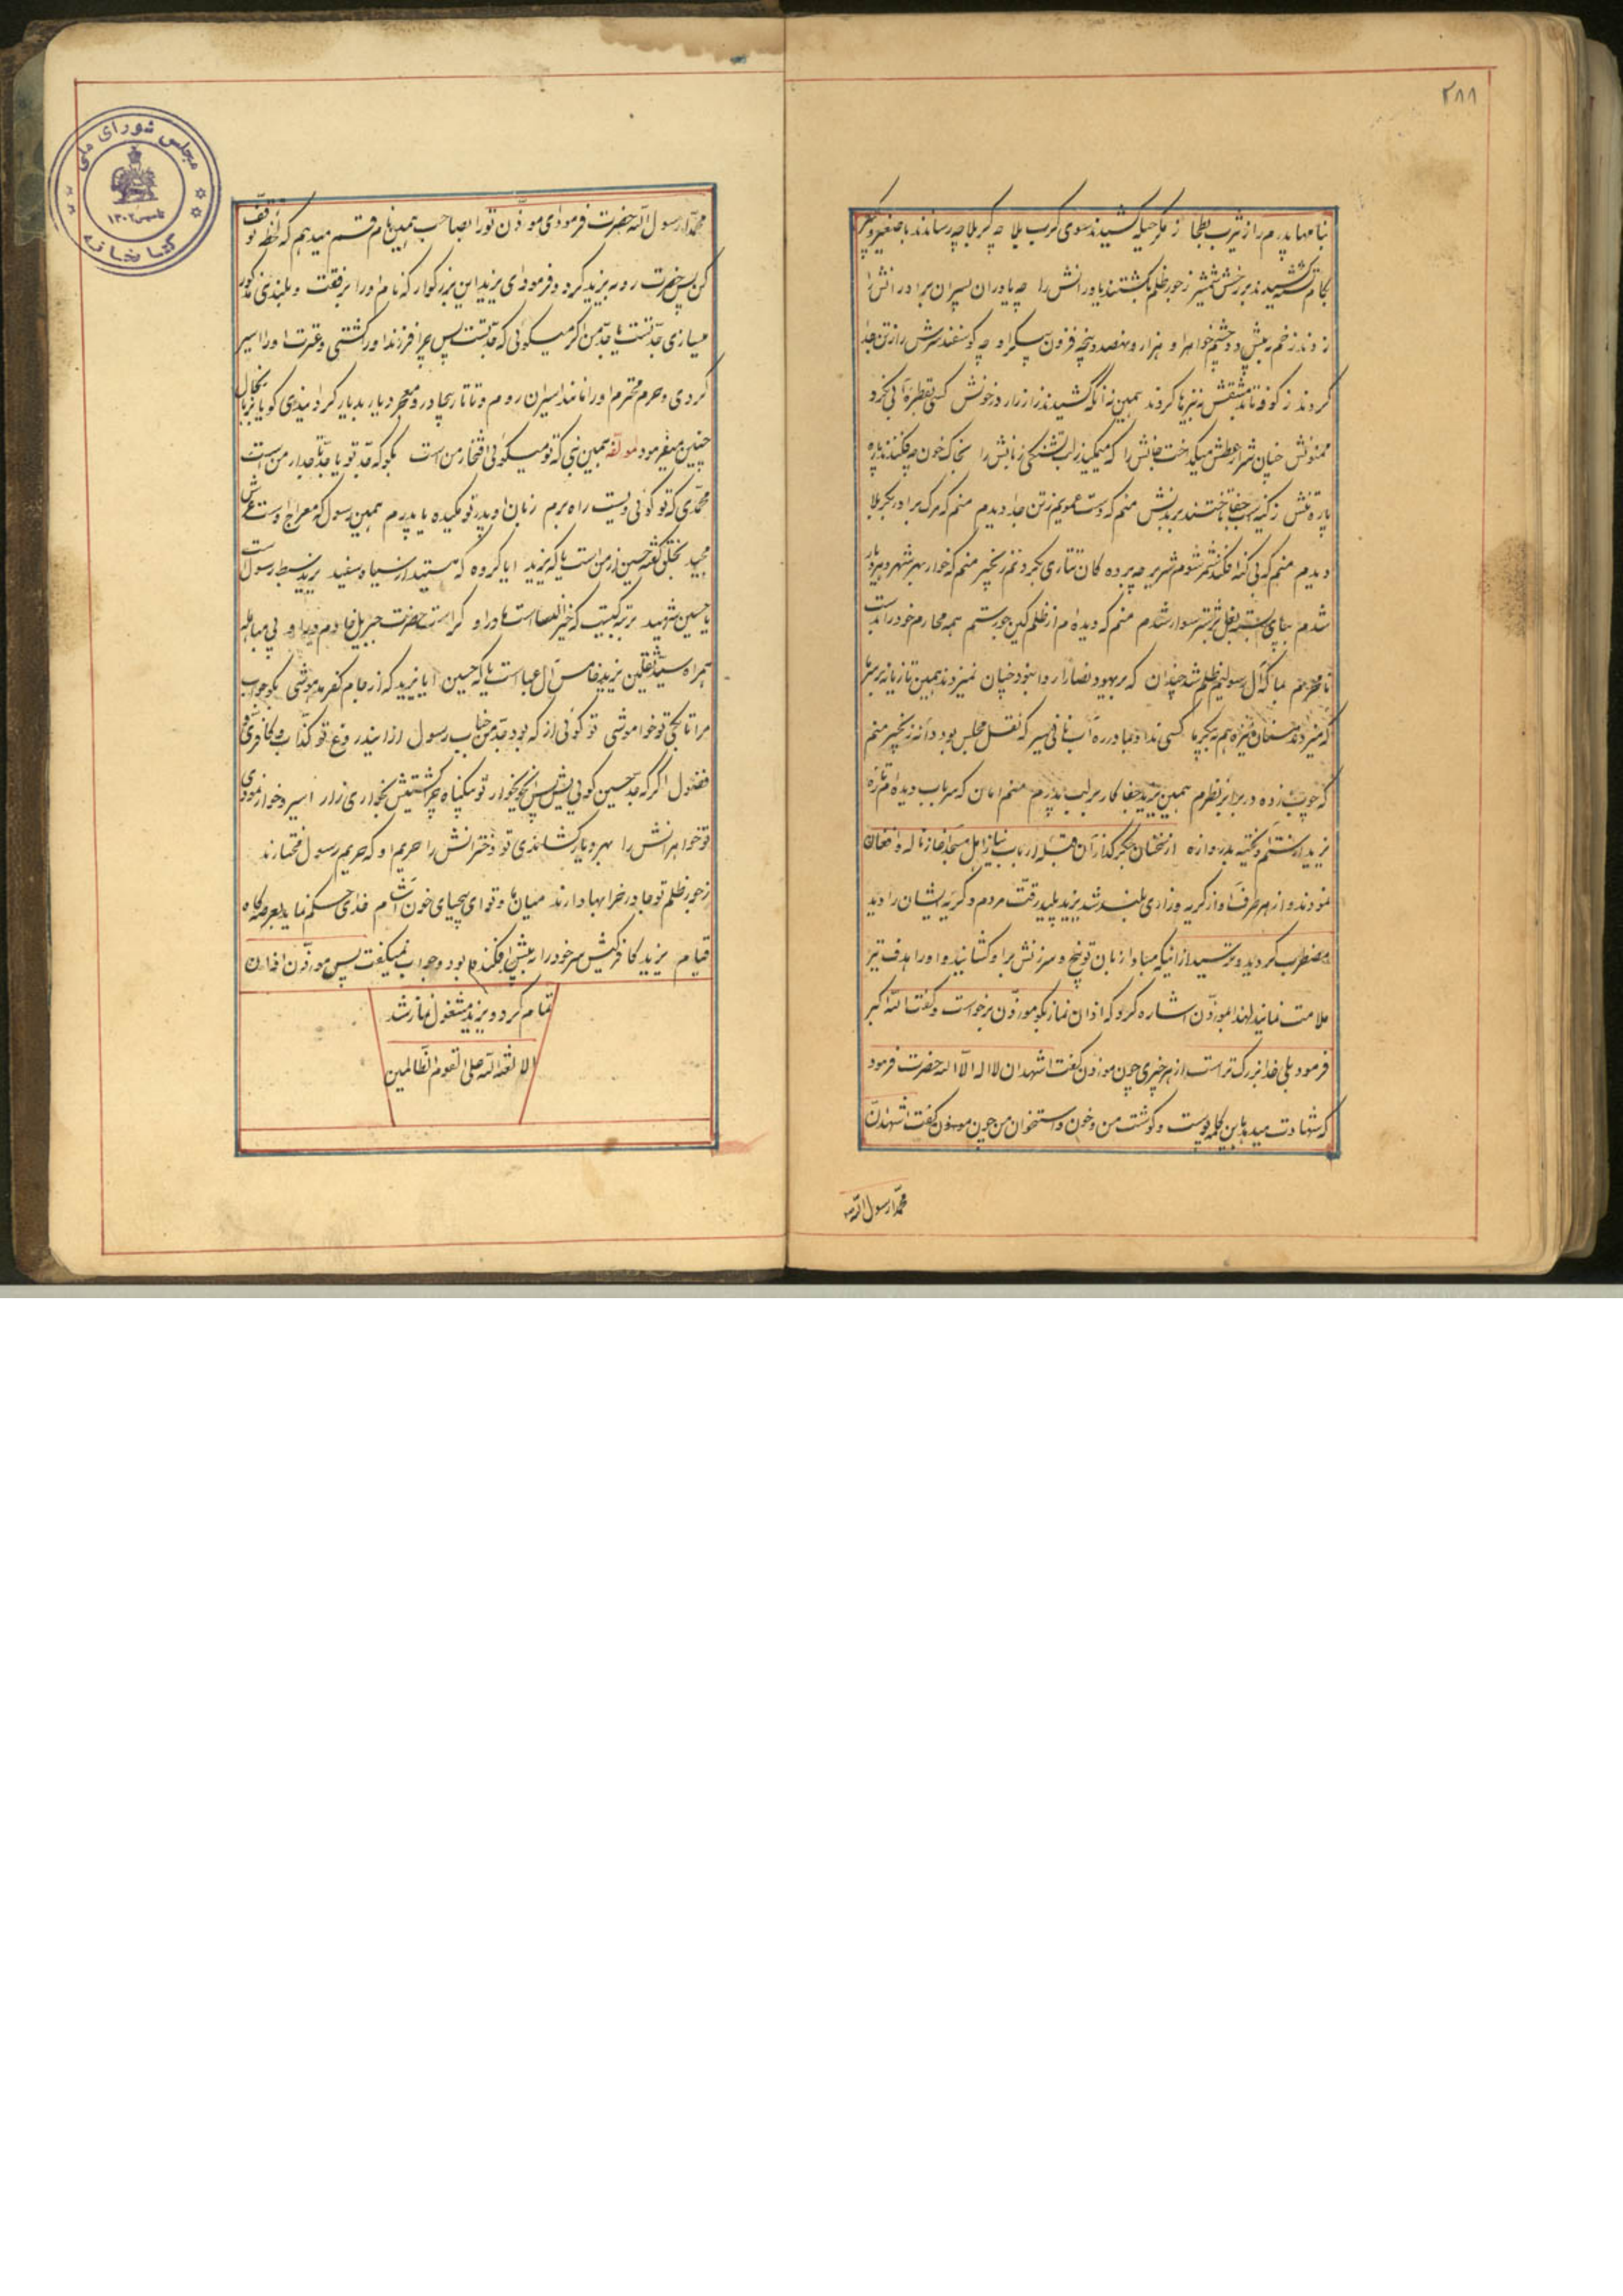 ۲۸۸
بنامها پدرم را ز یثرب بطحا ز مکر حیله کشیدند سوی کرب بلا چه کربلا چه رساندند با صغیر و کبیر
بکام تشنه کشیدند بر رخش شمشیر ز جور ظلم بکشتند یاورانش را چه یاوران پسران برادرانش را
زدند زخم به پیش دو چشم خواهر او هزار و نهصد و پنجه فزون به پیکر او چه گوسفند سرش را ز تن جدا
کردند ز کوفه تا بدمشقش به نیزها کردند همین نه آنکه کشیدند زار زار در خونش کسی بقطره آبی نکرد
ممنونش چنان شرار عطش میگداخت جانش را که میمکید ز لب تشنگی زبانش را بخاک خون چه فکندند پاره
پاره تنش ز کینه اسب جفا تاختند بر بدنش منم که دست عمویم ز تن جدا دیدم منم که مرگ برادر بکربلا
دیدم منم که بی گنه افکند شمر شوم شریر چه برده کان تتاری بگردنم زنجیر منم که خوار بهر شهر و هر دیار
شدم بپای بسته بغل بر شتر سوار شدم منم که دیده‌ام از ظلم کین جور ستم همه محارم خود را بدست
نامحرم بما که آل رسولیم ظلم شد چندان که بر یهود نصارا روا نبود چنان نمیزدند همین تازیانه بر سر ما
که میزدند سنان و نیزه هم به پیکر ما کسی نداد بما در ره آب نانی سیر که نقل مجلس بود دانه زنجیر منم
که چوب زده در برابر نظرم همین یزید جفا کار بر لب پدرم منم امان که سر باب دیده‌ام تازه
یزید از ستم آویخته بدروازه از سخنان جگر گداز آن قبله ارباب نیاز اهل مسجد آغاز ناله و افغان
نمودند و از هر طرف آواز گریه و زاری بلند شد یزید پلید رقت مردم و گریه ایشان را دید
مضطرب گردید و ترسید از اینکه مبادا زبان توبیخ و سرزنش بر او کشایند و او را هدف تیر
ملامت نمایند لهذا بموذن اشاره کرد که اذان نماز بگو موذن برخواست و گفت الله اکبر
فرمود بلی خدا بزرگ تر است از هر چیزی چون موذن گفت اشهد ان لا اله الا الله حضرت فرمود
که شهادت میدهد باین کلمه پوست و گوشت من و خون و استخوان من چون موذن گفت اشهد ان
محمدا رسول الله
محمدا رسول الله حضرت فرمود ای موذن تورا بصاحب همین نام قسم میدهم که لحظه توقف
کن پس حضرت رو به یزید کرد و فرمود ای یزید این بزرگوار که نام او را برفعت و بلندی مذکور
میسازی جد تست یا جد من اگر میگوئی که جد تست پس چرا فرزند او را کشتی و عترت او را اسیر
کردی و حرم محترم او را مانند اسیران روم و تاتار بیچادر و معجر دیار بدیار گردانیدی گویا بزبان حال
چنین میفرمود مولفه همین نبی که تو میگوئی افتخار من است بگو که جد تو یا جد تاجدار من است
محمدی که تو گوئی دلیست راه برم زبان او پدر تو مکیده یا پدرم همین رسول که معراج اوست عرش
مجید بخلق گفته حسین از من است یا که یزید ایا گروه که هستید از سیاه سفید یزید سبط رسول است
یا حسین شهید برتبه کیست که خیر النسا است مادر او کراست حضرت جبریل خادم در او پی مباهله
همراه سید ثقلین یزید خامس آل عبا است یا که حسین ایا یزید که از جام کفر مدهوشی بگو جواب
مرا تا بکی تو خواموشی تو گوئی ار که بود جد من جناب رسول ازاین دروغ تو کذاب و کافری و
فضول اگر که جد حسین گوئی پس ای خونخوار تو بیگناه چرا کشتیش بخواری زار اسیر و خوار نمودی
تو خواهرانش را بهر دیار کشاندی تو دخترانش را حریم او که حریم رسول مختارند
ز جور ظلم تو جا در خرابها دارند میان ما و تو ای بیحیای خون آشام خدای حکم نماید بعرصه گاه
قیام یزید کافر کیش سر خود را به پیش افکنده بود و جواب نمیگفت پس موذن اذان
تمام کرد و یزید مشغول نماز شد
الا لعنة الله علی القوم الظالمین
مجلس شورای ملی
تاسیس ۱۳۰۲
کتابخانه